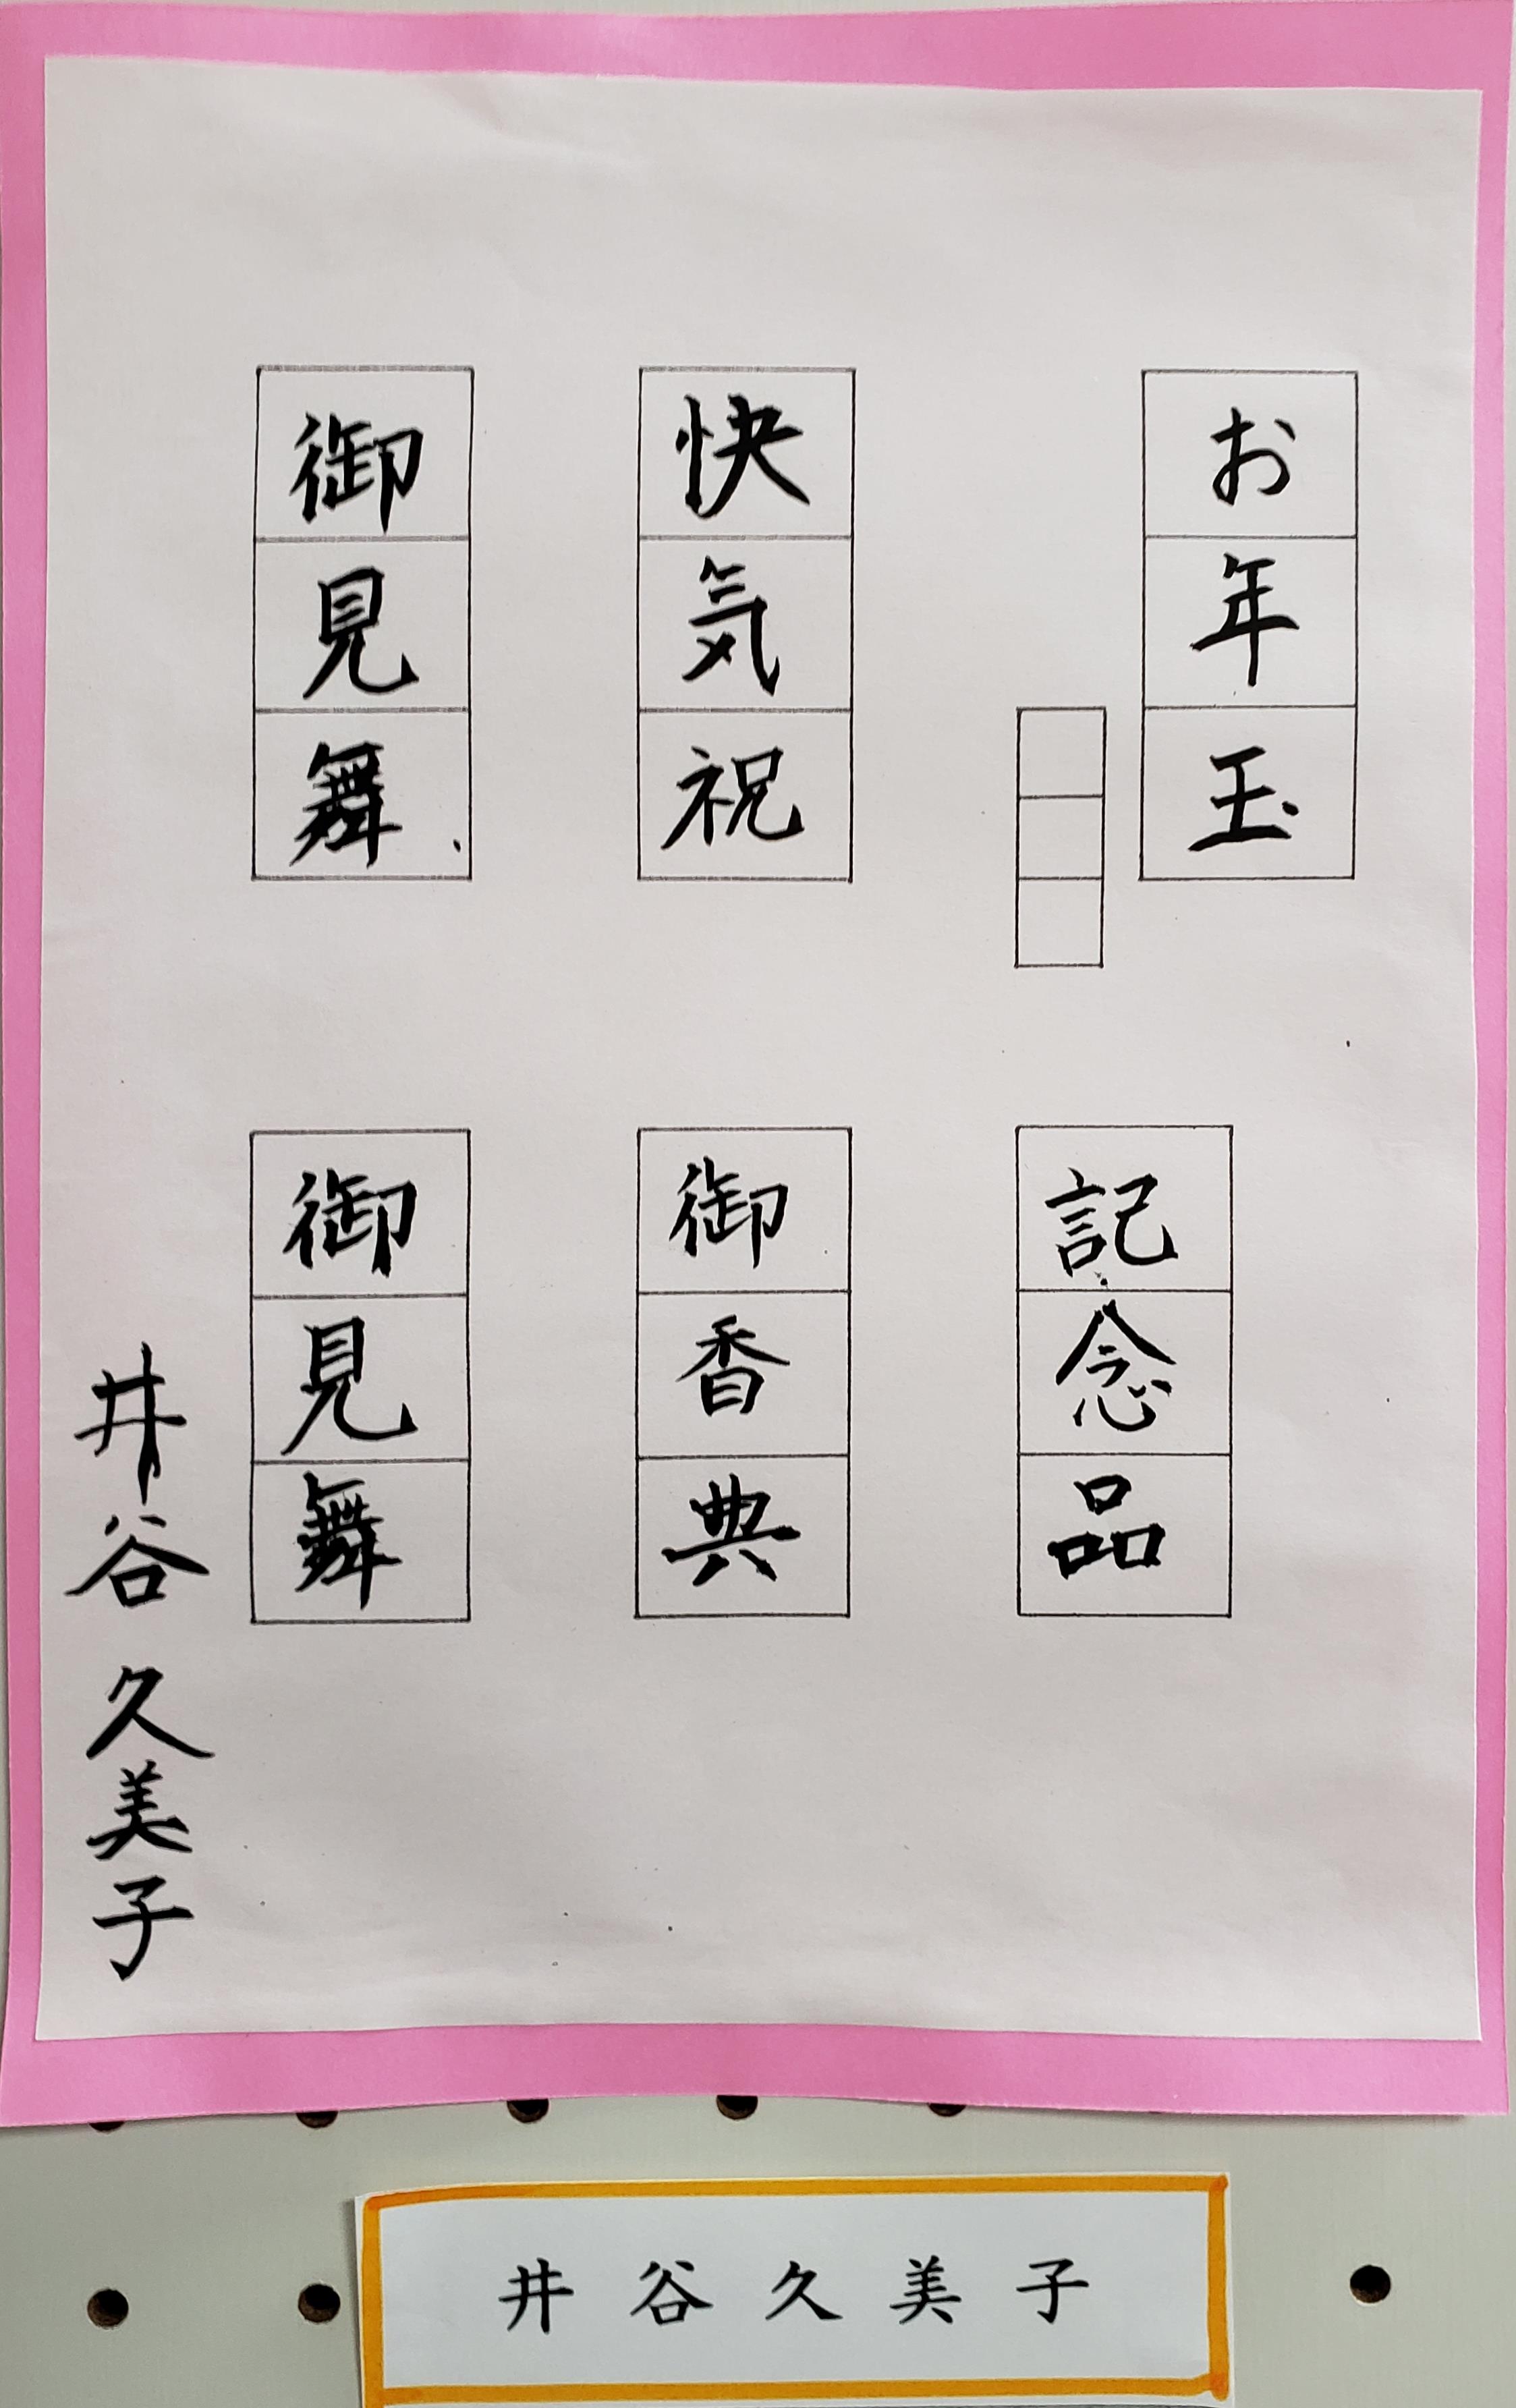 お年玉
快気祝
御見舞
記念品
御香典
御見舞
井谷久美子
井谷久美子